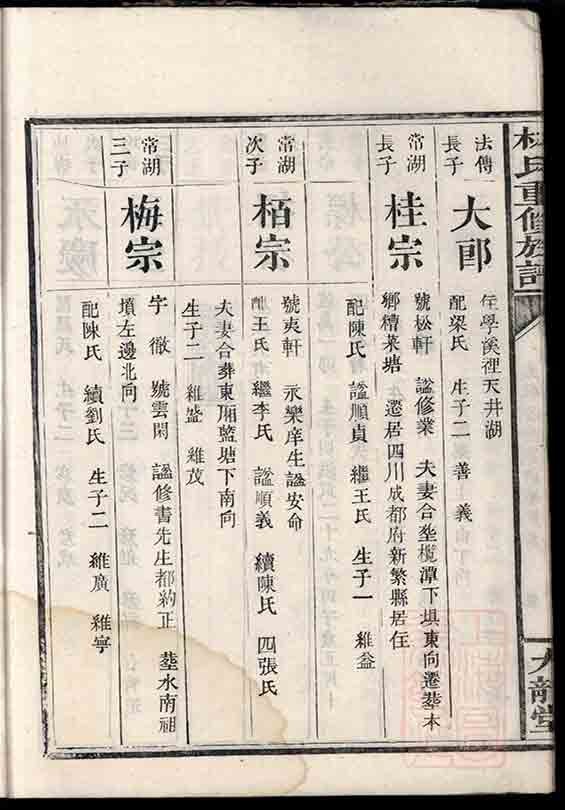 林氏重修族譜
九龍堂
法傳
長子
大郎
住學溪裡天井湖
配梁氏 生子二 善 義
常湖
長子
桂宗
號松軒 謚修業 夫妻合塟欖潭下埧東向遷塟本
鄉糟菜塘 遷居四川成都府新繁縣居住
配陳氏 謚順貞 繼王氏 生子一 維益
常湖
次子
栢宗
號夷軒 永樂庠生謚安命
配王氏 繼李氏 謚順義 續陳氏 四張氏
夫妻合葬東廂藍塘下南向
生子二 維盛 維茂
常湖
三子
梅宗
字徹 號雲閑 謚修書先生都約正 塟水南祖
墳左邊北向
配陳氏 續劉氏 生子二 維廣 維寧